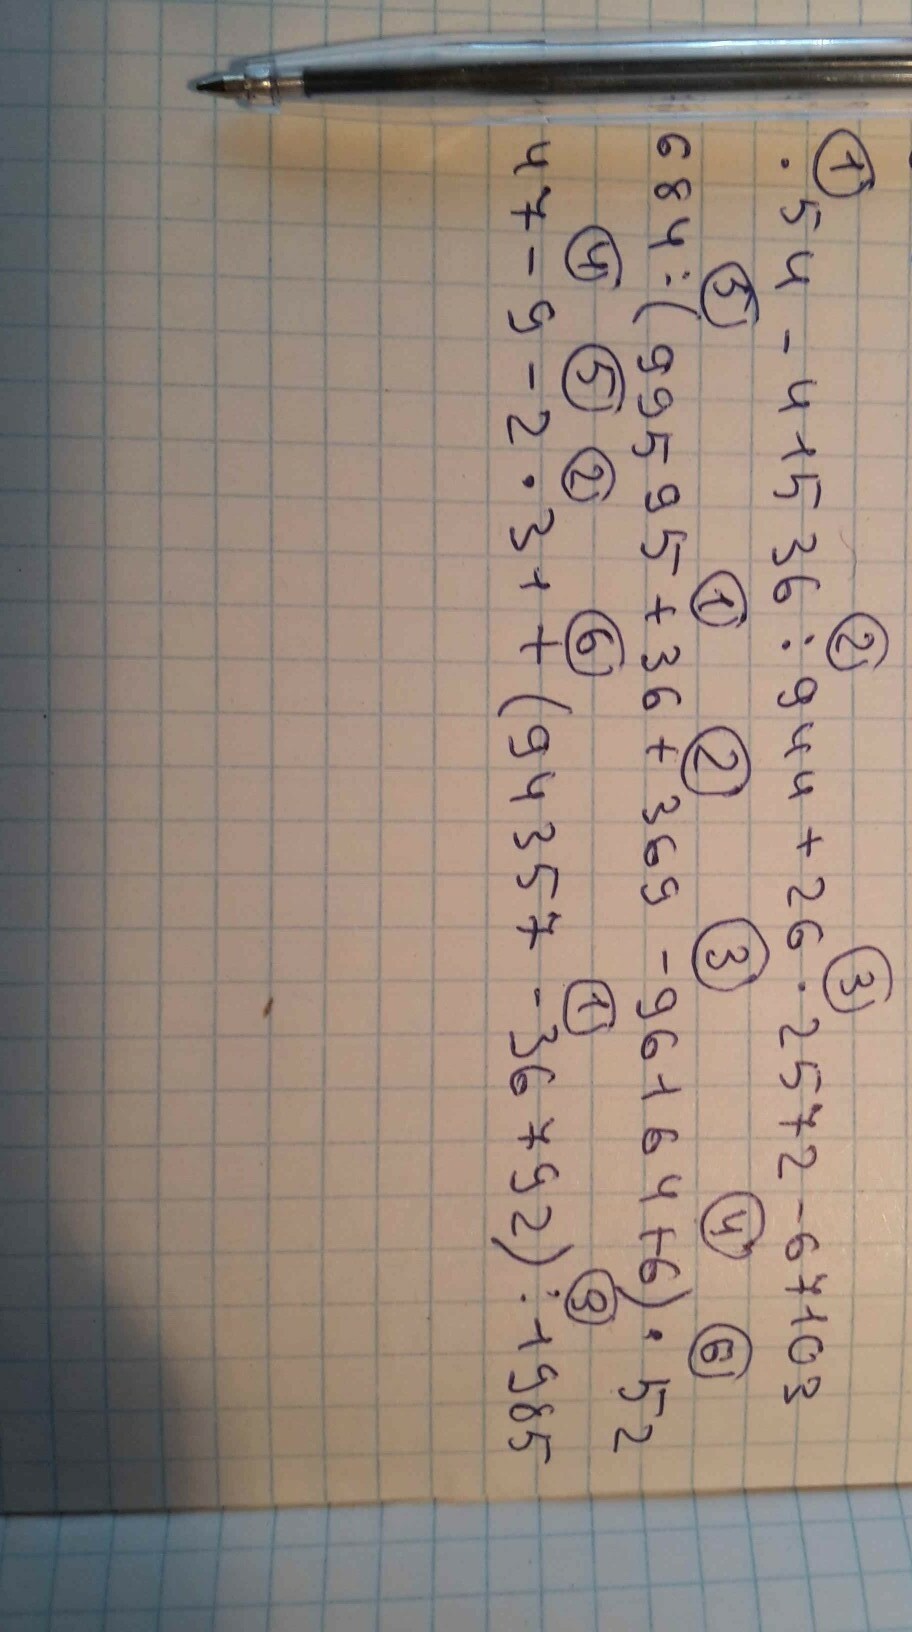 ① ② ③
· 54 - 41536 : 944 + 26 · 2572 - 67103
⑤ ① ② ③ ④ ⑥
684 : (99595 + 36 + 369 - 96164 + 6) · 52
④ ⑤ ② ⑥ ① ③
47 - 9 - 2 · 31 + (94357 - 36792) : 1985